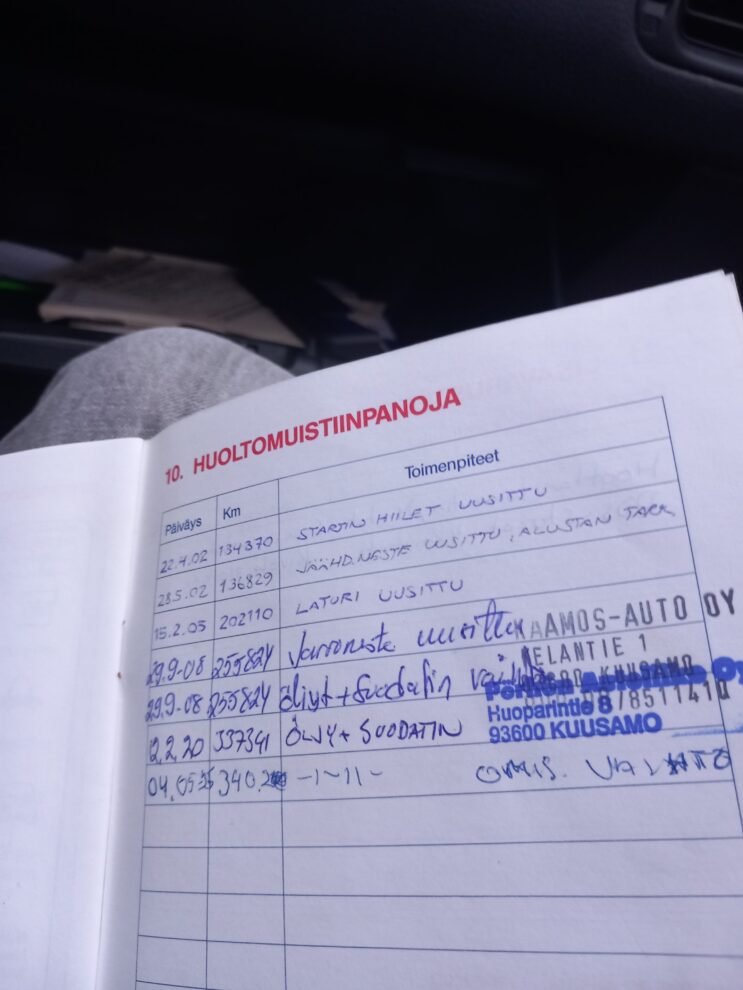 10. HUOLTOMUISTIINPANOJA
Päiväys Km Toimenpiteet
22.4.02 134370 STARTIN HIILET UUSITTU
28.5.02 136829 JÄÄHD.NESTE UUSITTU, ALUSTAN TARK
15.2.05 202110 LATURI UUSITTU
29.9-08 255824 Jarruneste uusittu
KAAMOS-AUTO OY
KELANTIE 1
29.9-08 255824 Öljyt + Suodatin
KUUSAMO
/8511410
12.2.20 337341 ÖLJY + SUODATIN
Huoparintie 8
93600 KUUSAMO
04.05 340.2 -1-11- OMIS. VAIHTO